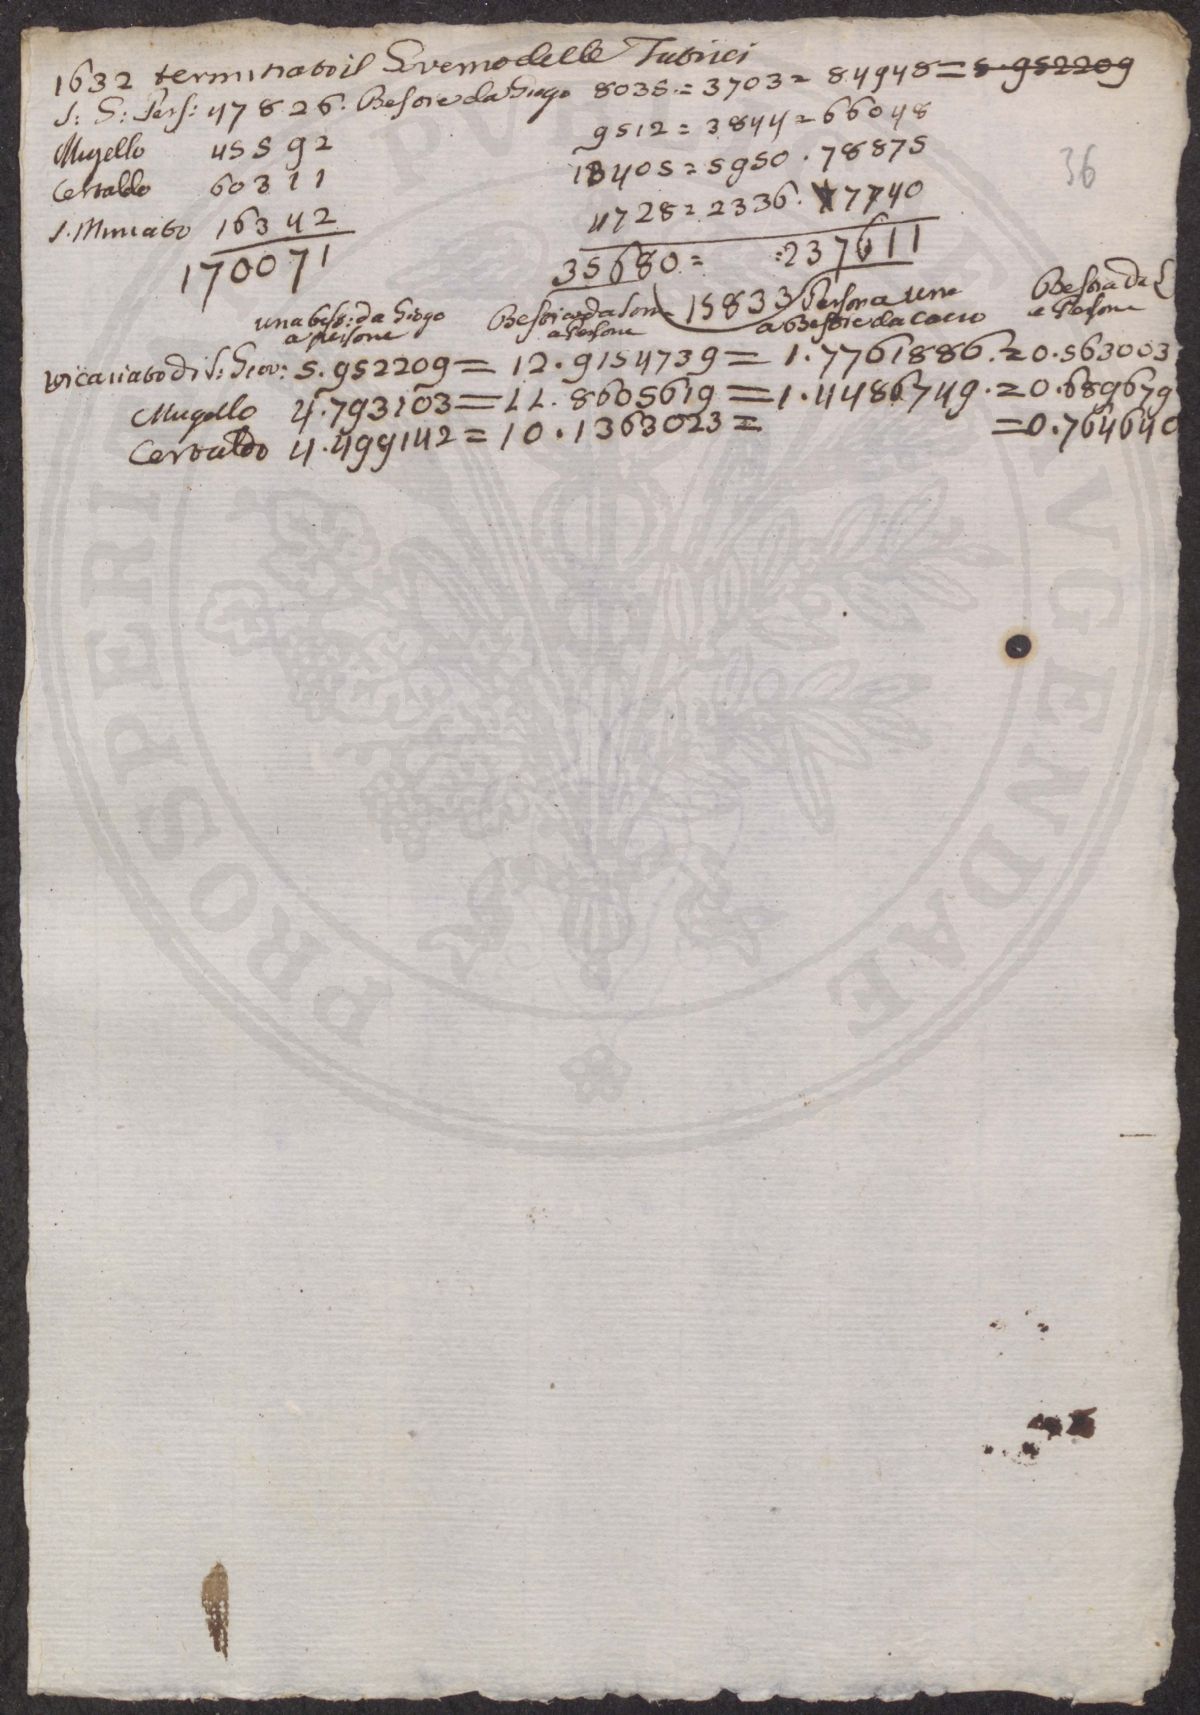 1632 terminato il Governo delle Infrascri
S: G: Pers: 47826. Bestie da Giogo 8035 = 3703 = 84948 = 5.952209
Mugello 45592 9512 = 3844 = 66048
Certaldo 60311 13405 = 5950 . 78875
S. Miniato 16342 4728 = 2336 . 7740
170071 35680 = 15833 : 237611
una best: da Giogo a persone
Bestia da Som a Persone
Persona una a Bestie da cacio
Bestia da e Persone
vicariato di S: Giov: 5.952209 = 12.9154739 = 1.7761886. = 0.563003
Mugello 4.793103 = 11.8605619 = 1.4486749. = 0.689679
Certaldo 4.499142 = 10.1363023 = = 0.764640
36
PROSPERI
VGENDAE